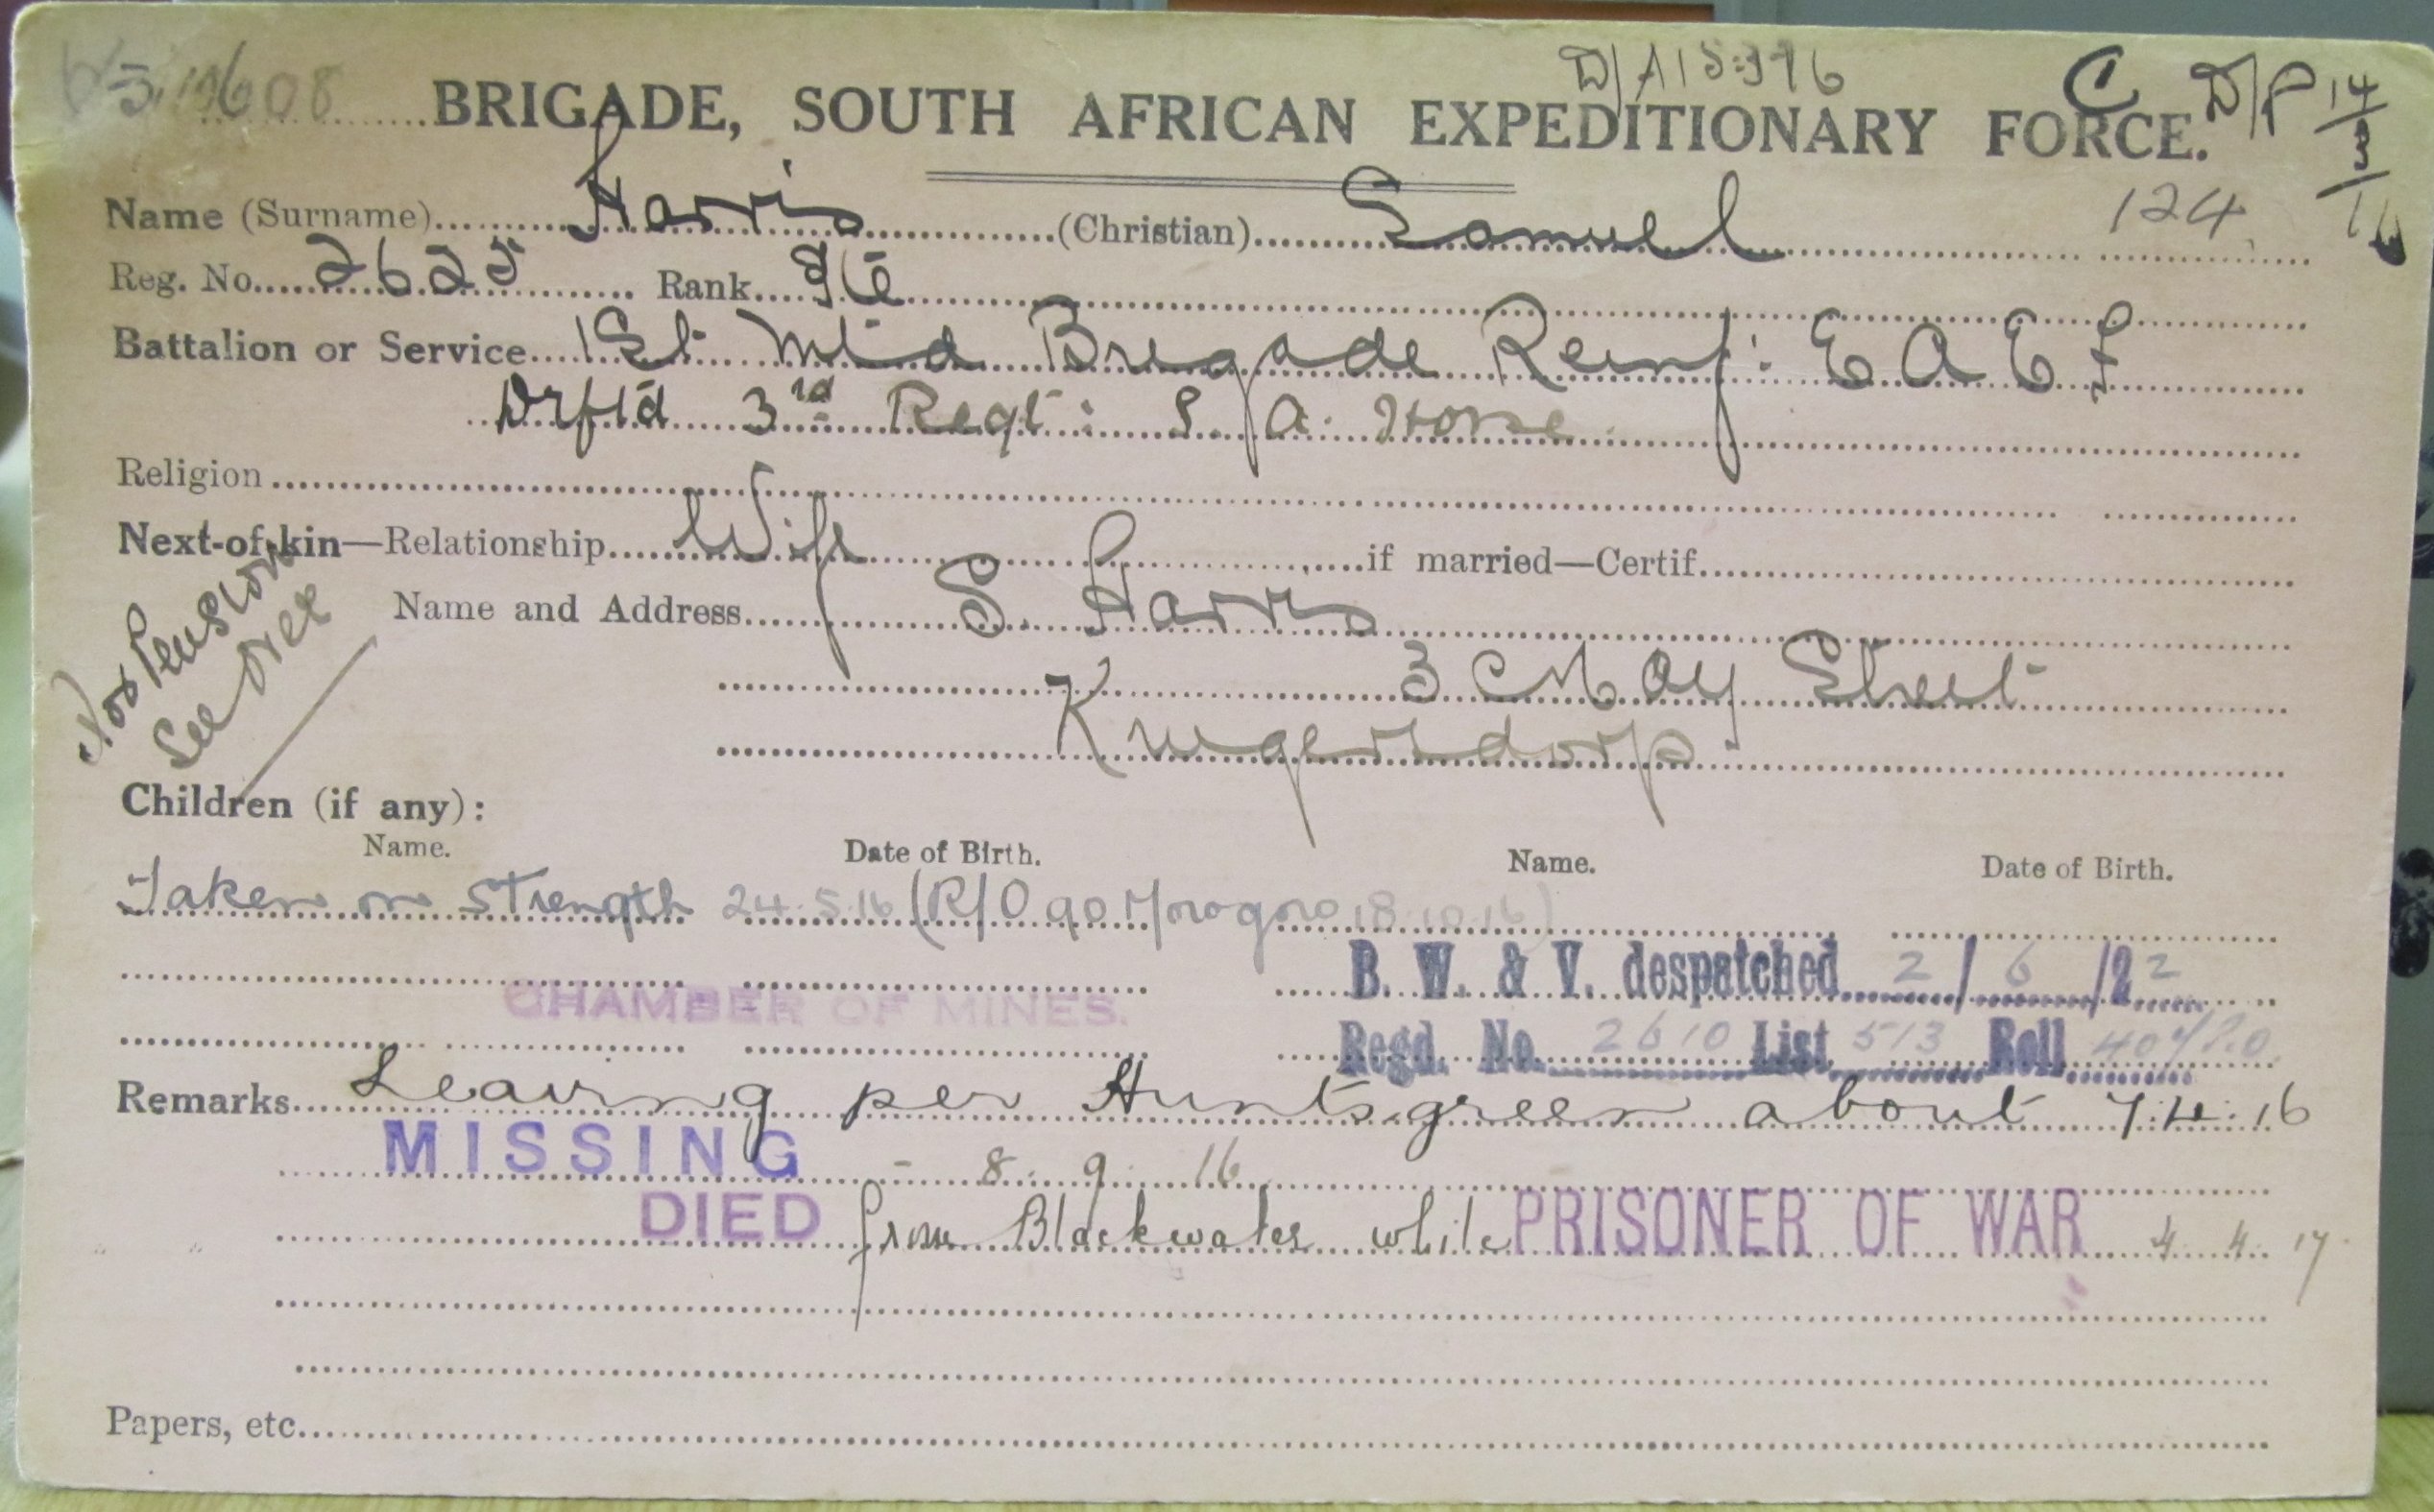 D/A15376 C D/P 14/3/16
BRIGADE, SOUTH AFRICAN EXPEDITIONARY FORCE.
Name (Surname) Harris (Christian) Samuel 124
Reg. No. 2625 Rank Pte
Battalion or Service 1St Mtd Brigade Reinf: E A E F
Drftd 3rd Regt: S. A. Horse
Religion
Next-of-kin—Relationship Wife if married—Certif.
Name and Address S. Harris
3 May Street
Krugersdorp
For Pension
See over
Children (if any):
Name. Date of Birth. Name. Date of Birth.
Taken on strength 24.5.16 (R/O 90 Morogoro 18.10.16)
B. W. & V. despatched 2/6/22
CHAMBER OF MINES.
Regd. No. 2610 List 513 Roll
Remarks Leaving per Huntsgreen about 7.4.16
MISSING - 8. 9. 16
DIED from Blackwater while PRISONER OF WAR 4. 4. 17
Papers, etc.